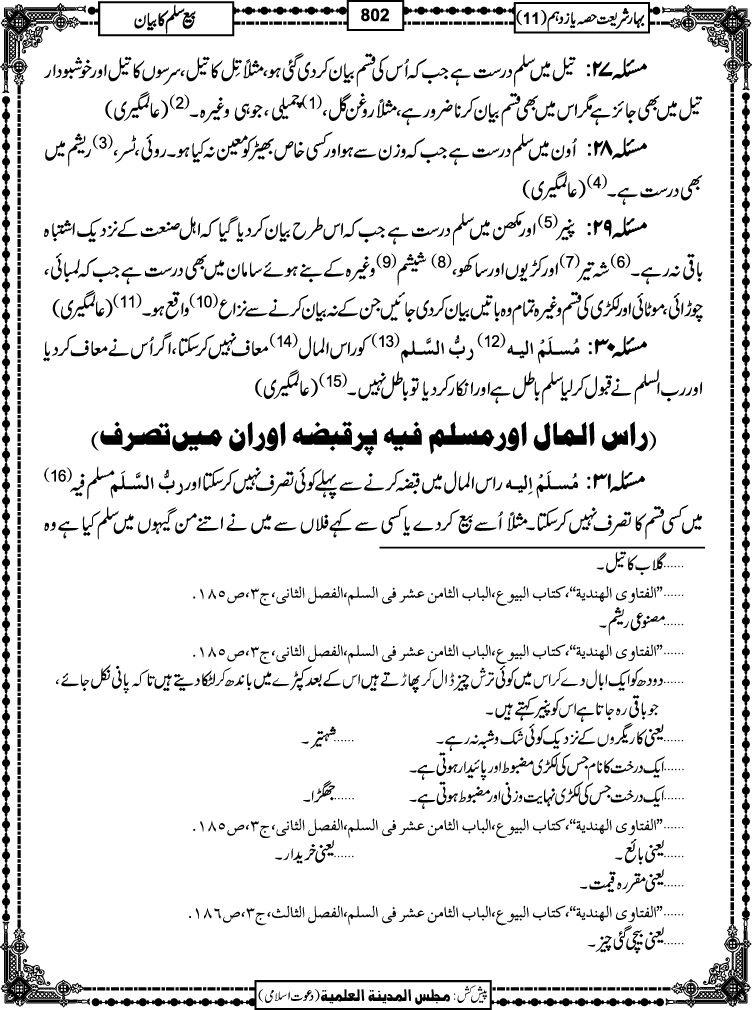 بہار شریعت حصہ یازدہم (11)
802
بیع سلم کا بیان
مسئلہ ۲۷: تیل میں سلم درست ہے جب کہ اُس کی قسم بیان کر دی گئی ہو، مثلاً تِل کا تیل، سرسوں کا تیل اور خوشبودار
تیل میں بھی جائز ہے مگر اس میں بھی قسم بیان کرنا ضرور ہے، مثلاً روغن گل، (1) چمیلی، جوہی وغیرہ۔ (2) (عالمگیری)
مسئلہ ۲۸: اُون میں سلم درست ہے جب کہ وزن سے ہو اور کسی خاص بھیڑ کو معین نہ کیا ہو۔ روئی، ٹسر، (3) ریشم میں
بھی درست ہے۔ (4) (عالمگیری)
مسئلہ ۲۹: پنیر (5) اور مکھن میں سلم درست ہے جب کہ اس طرح بیان کر دیا گیا کہ اہل صنعت کے نزدیک اشتباہ
باقی نہ رہے۔ (6) شہ تیر (7) اور کڑیوں اور ساکھو، (8) شیشم (9) وغیرہ کے بنے ہوئے سامان میں بھی درست ہے جب کہ لمبائی،
چوڑائی، موٹائی اور لکڑی کی قسم وغیرہ تمام وہ باتیں بیان کر دی جائیں جن کے نہ بیان کرنے سے نزاع (10) واقع ہو۔ (11) (عالمگیری)
مسئلہ ۳۰: مُسلَمْ اليه (12) ربُّ السَّلم (13) کو راس المال (14) معاف نہیں کر سکتا، اگر اُس نے معاف کر دیا
اور رب السلم نے قبول کر لیا سلم باطل ہے اور انکار کر دیا تو باطل نہیں۔ (15) (عالمگیری)
(راس المال اور مسلم فیہ پر قبضہ اور ان میں تصرف)
مسئلہ ۳۱: مُسلَمْ اِليه راس المال میں قبضہ کرنے سے پہلے کوئی تصرف نہیں کر سکتا اور ربُّ السَّلَم مسلم فیہ (16)
میں کسی قسم کا تصرف نہیں کر سکتا۔ مثلاً اُسے بیع کر دے یا کسی سے کہے فلاں سے میں نے اتنے من گیہوں میں سلم کیا ہے وہ
......گلاب کا تیل۔
......"الفتاوى الهندية"، كتاب البيوع، الباب الثامن عشر فى السلم، الفصل الثانى، ج۳، ص۱۸۵.
......مصنوعی ریشم۔
......"الفتاوى الهندية"، كتاب البيوع، الباب الثامن عشر فى السلم، الفصل الثانى، ج۳، ص۱۸۵.
......دودھ کو ایک ابال دے کر اس میں کوئی ترش چیز ڈال کر پھاڑتے ہیں اس کے بعد کپڑے میں باندھ کر لٹکا دیتے ہیں تا کہ پانی نکل جائے،
جو باقی رہ جاتا ہے اس کو پنیر کہتے ہیں۔
......یعنی کاریگروں کے نزدیک کوئی شک و شبہ نہ رہے۔ ......شہتیر۔
......ایک درخت کا نام جس کی لکڑی مضبوط اور پائیدار ہوتی ہے۔
......ایک درخت جس کی لکڑی نہایت وزنی اور مضبوط ہوتی ہے۔ ......جھگڑا۔
......"الفتاوى الهندية"، كتاب البيوع، الباب الثامن عشر فى السلم، الفصل الثانى، ج۳، ص۱۸۵.
......یعنی بائع۔ ......یعنی خریدار۔
......یعنی مقررہ قیمت۔
......"الفتاوى الهندية"، كتاب البيوع، الباب الثامن عشر فى السلم، الفصل الثالث، ج۳، ص۱۸۶.
......یعنی بیچی گئی چیز۔
پیش کش: مجلس المدينة العلمية (دعوت اسلامی)